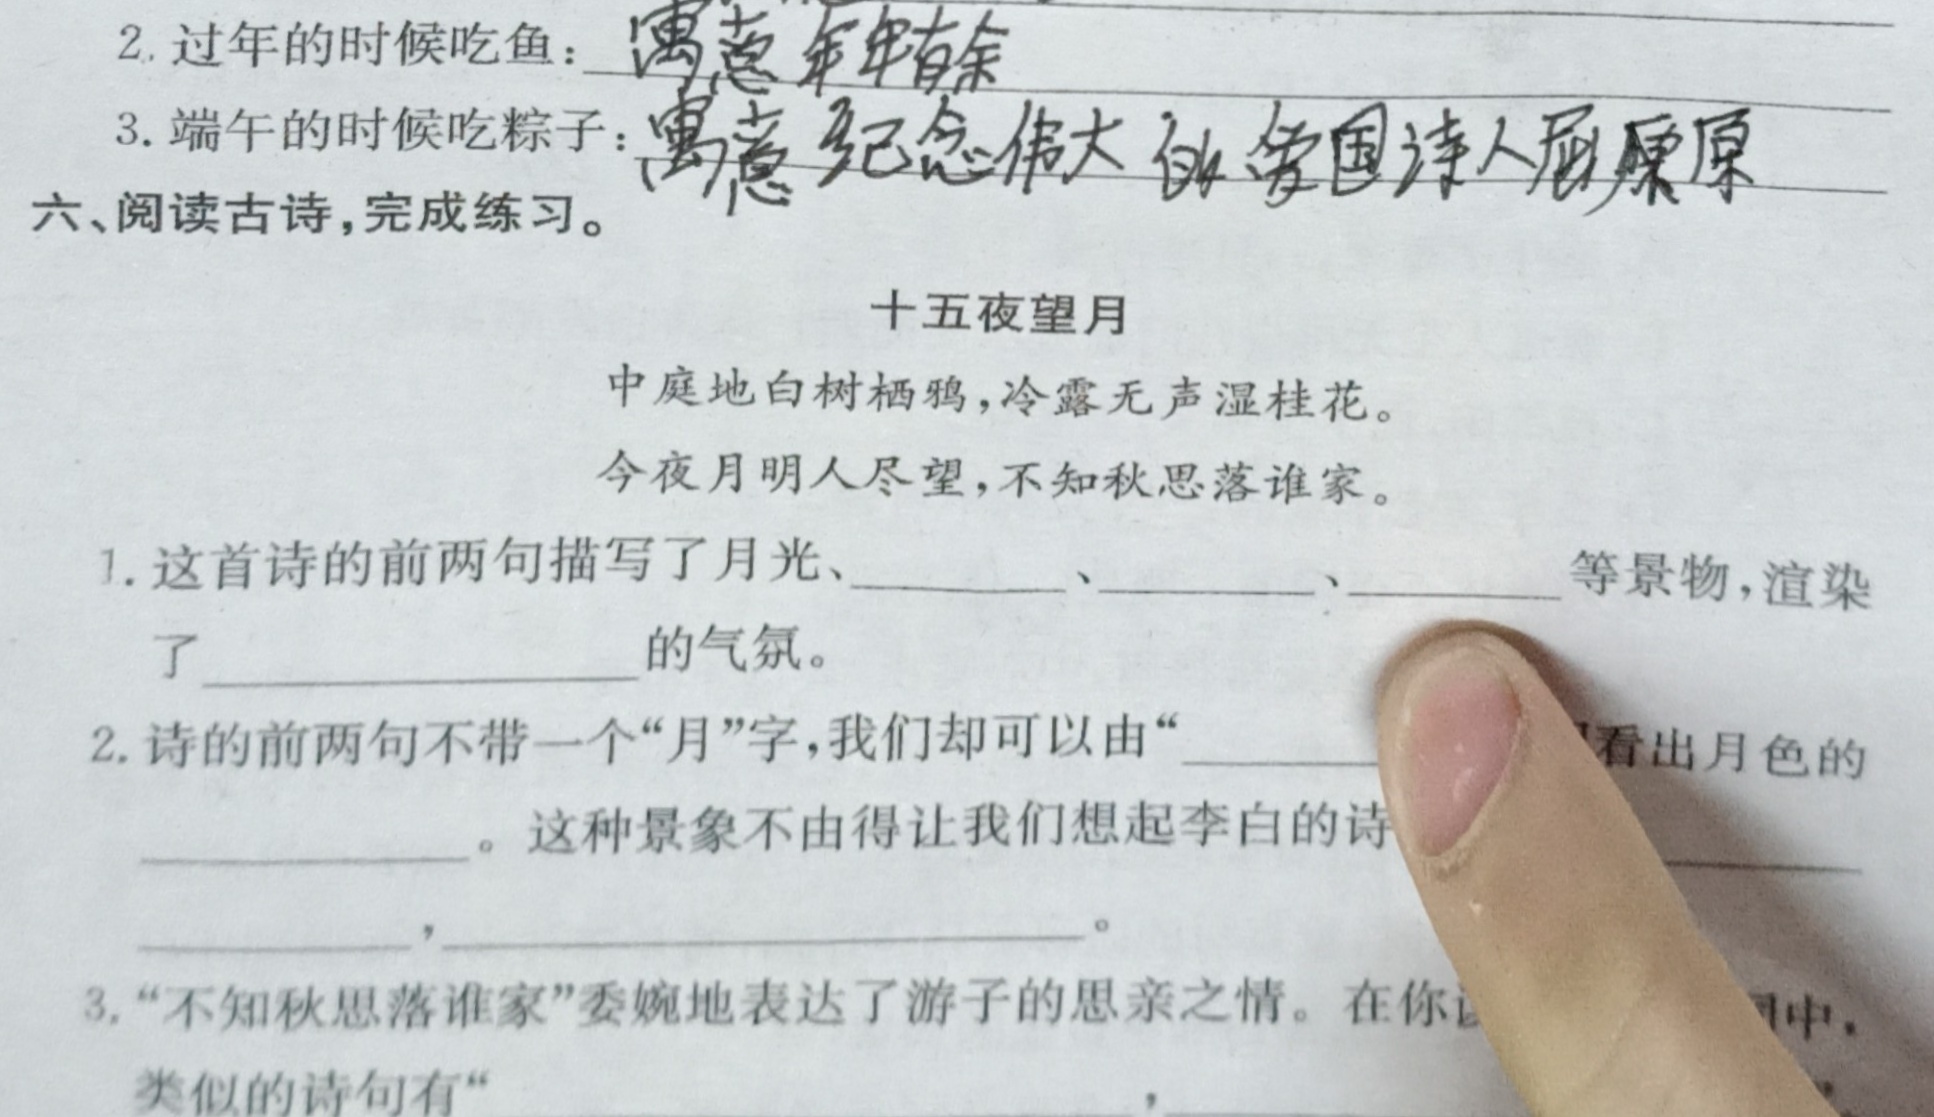 2. 过年的时候吃鱼：寓意年年有余
3. 端午的时候吃粽子：寓意纪念伟大的爱国诗人屈原
六、阅读古诗，完成练习。
十五夜望月
中庭地白树栖鸦，冷露无声湿桂花。
今夜月明人尽望，不知秋思落谁家。
1. 这首诗的前两句描写了月光、________、________、________等景物，渲染
了________________的气氛。
2. 诗的前两句不带一个“月”字，我们却可以由“________看出月色的
____________。这种景象不由得让我们想起李白的诗________
__________，________________________。
3. “不知秋思落谁家”委婉地表达了游子的思亲之情。在你 中，
类似的诗句有“________________________，________”